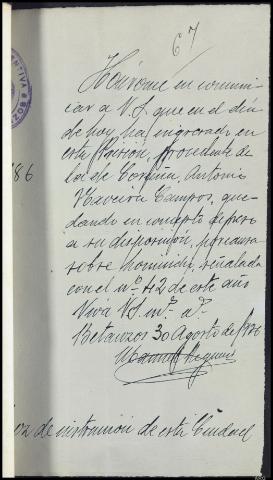 67
Hónrome en comuni-
car a V.S. que en el día
de hoy, ha ingresado en
esta Prisión, procedente de
la de Coruña, Antonio
Maceira Campos, que-
dando en concepto de preso
a su disposición, por causa
sobre homicidio, señalada
con el nº 42 de este año
Viva V.S. m.s a.s
Betanzos 30 Agosto de
Manuel
de instrucción de esta Ciudad
86